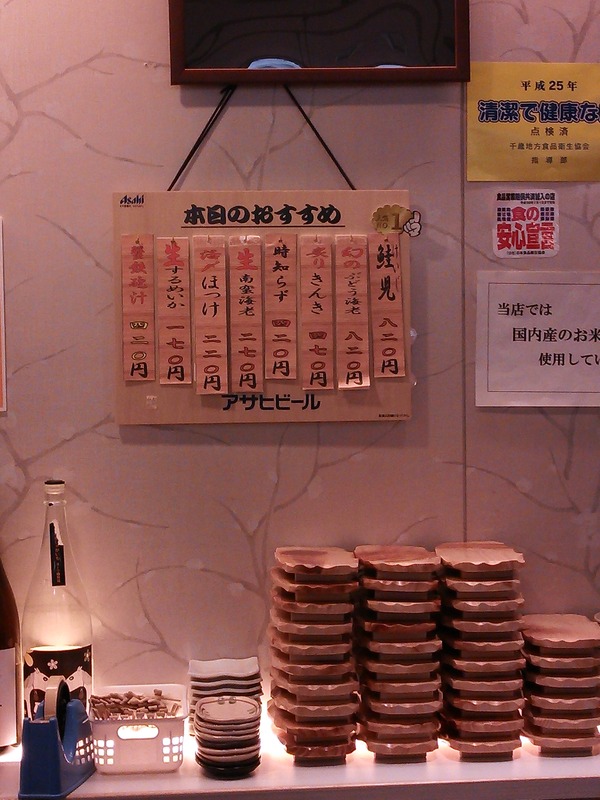 Asahi
本日のおすすめ
No.1
鮭児 八二〇円
幻のぶどう海老 八二〇円
炙りきんき 四七〇円
時知らず 四二〇円
生南蛮海老 二七〇円
ほっけ 二二〇円
生するめいか 一七〇円
鉄砲汁 四二〇円
アサヒビール
平成25年
清潔で健康な
点検済
千歳地方食品衛生協会
指導部
食の
安心宣言
当店では
国内産のお米
使用してい